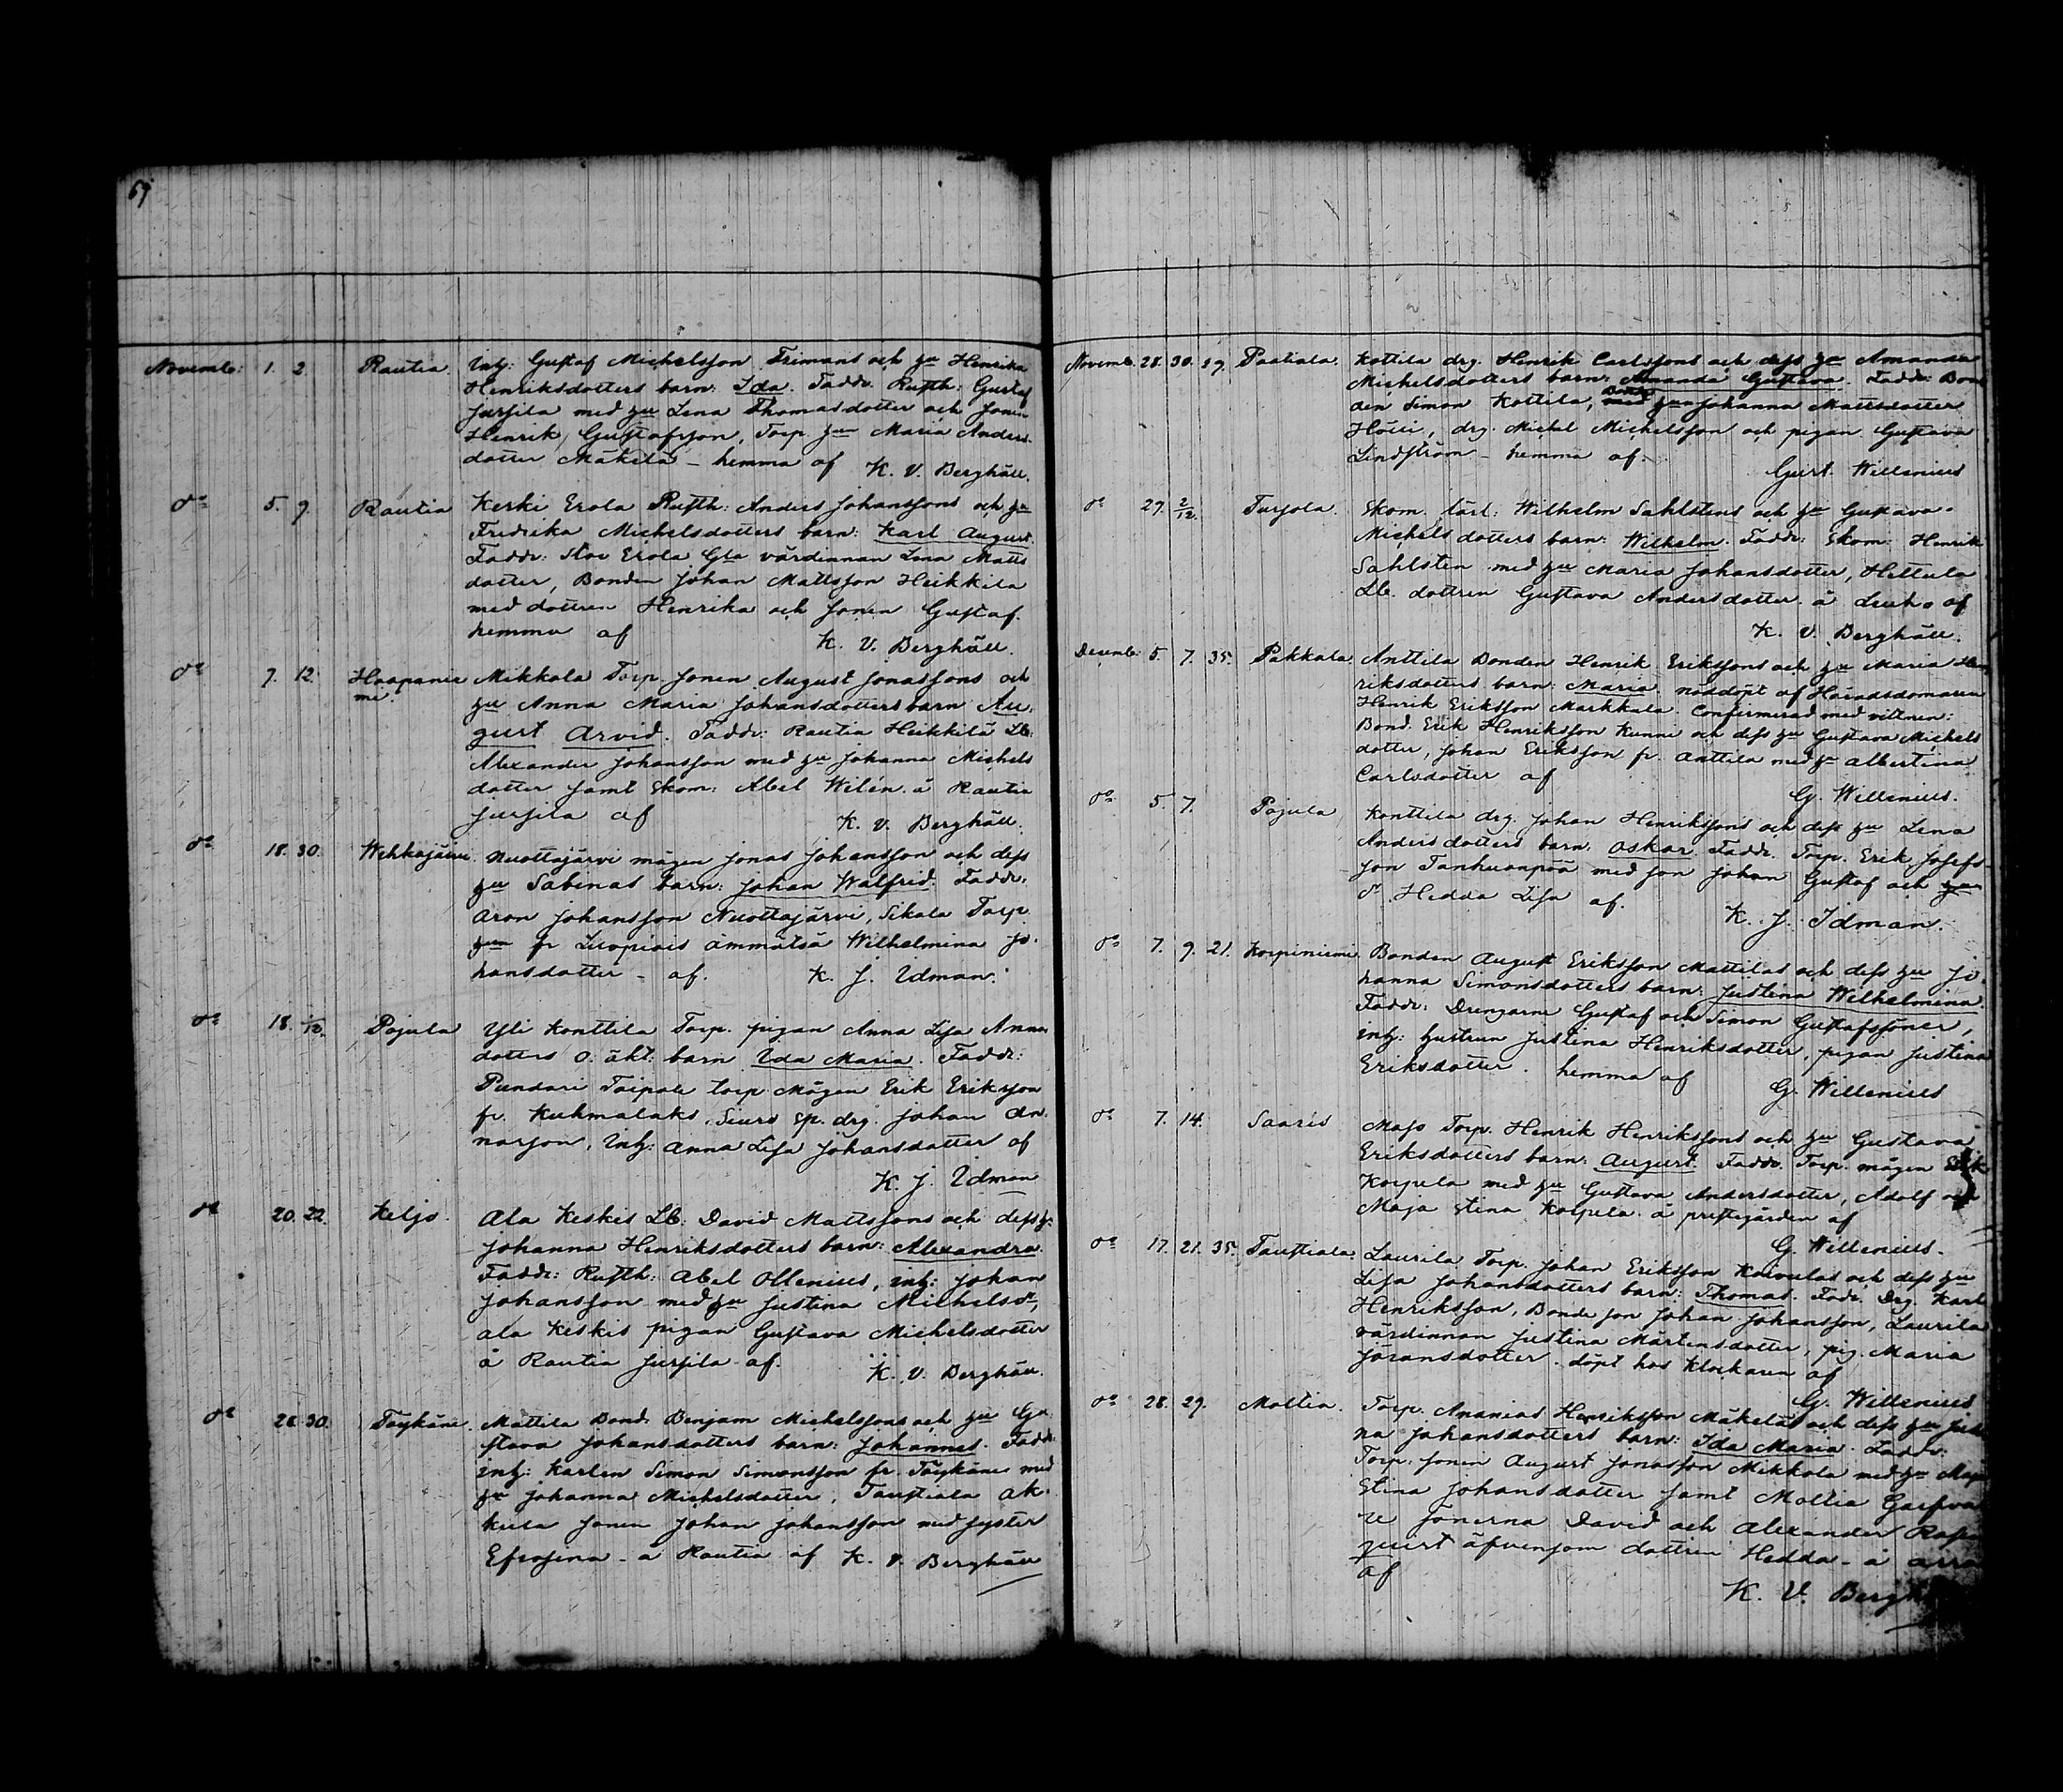 69
Novemb: 1. 2. Rautia. Inh: Gustaf Michelsson Frimans och hu Henrika
Henriksdotters barn: Ida. Faddr. Rusth: Gustaf
Jussila med hu Lena Thomasdotter och sonen
Henrik Gustafsson, Torp. hu Maria Anders-
dotter Mäkelä – hemma af K. V. Berghäll.
do 5. 9. Rautia Keski Erola Rusth: Anders Johanssons och hu
Fredrika Michelsdotters barn: Karl August.
Faddr: Erola Gla värdinnan Lena Matts
dotter, Bonden Johan Mattsson Heikkila
med dottren Henrika och sonen Gustaf.
hemma af K. V. Berghäll.
do 7. 12. Haapanie Mikkola Torp. sonen August Jonassons och
mi. hu Anna Maria Johansdotters barn Au-
gust Arvid. Faddr: Rautia Heikkilä Lb:
Alexander Johansson med hu Johanna Michels
dotter samt Skom: Abel Wilén. å Rautia
Jussila af K. V. Berghäll.
do 18. 30. Wehkajärvi Nuottajärvi mågen Jonas Johansson och dess
hu Sabinas barn: Johan Walfrid. Faddr:
Aron Johansson Nuottajärvi, Sikala Torp
hu fr Luopiois ämmätsä Wilhelmina Jo-
hansdotter – af. K. J. Idman.
do 18. 1/12. Pajula Yli Konttila Torp. pigan Anna Lisa Anna
dotters o: äkt: barn Ida Maria. Faddr:
Pundari Taipale torp mågen Erik Eriksson
fr. Kuhmalaks, Siuro Sp. drg. Johan An-
narson, Inh: Anna Lisa Johansdotter af
K. J. Idman
do 20. 22. Keljo. Ala Keskis Lb: David Mattssons och dess h:
Johanna Henriksdotters barn: Alexandra.
Faddr: Rusth: Abel Ollenius, inh: Johan
Johansson med hu Justina Michelsdr,
Ala Keskis pigan Gustava Michelsdotter
å Rautia Jussila af. K. V. Berghäll.
do 28. 30. Töykäne. Mattila Bond. Benjam Michelssons och hu Gu
stava Johansdotters barn: Johannes. Faddr:
inh: Karlen Simon Simonsson fr. Töykäne med
hu Johanna Michelsdotter, Taustiala Ak-
kula sonen Johan Johansson med syster
Efrosina – å Rautia af K. V. Berghäll
Novemb. 28. 30. 29. Paatiala. Kottila drg. Henrik Carlssons och dess hu Amanda
Michelsdotters barn: Amanda Gustava. Faddr: Bon
den Simon Kottila, hu Johanna Mattsdotter
drg. Michel Michelsson och pigan Gustava
Lindström – hemma af.
Gust. Willenius
do 29. 2/12. Turjola. Skom. lärl: Wilhelm Sahlstens och hu Gustava
Michelsdotters barn: Wilhelm. Faddr: Skom: Henrik
Sahlsten med hu Maria Johansdotter,
Lb. dottren Gustava Andersdotter. å af
K. V. Berghäll.
Decemb: 5. 7. 35. Pakkala. Anttila Bonden Henrik Erikssons och hu Maria Hen
riksdotters barn: Maria. nöddöpt af Häradsdomaren
Henrik Eriksson Markkala. Confirmerad med vittnen:
Bond. Erik Henriksson Kunni och dess hu Gustava Michels
dotter, Johan Eriksson fr. Anttila med hu Albertina
Carlsdotter af
G. Willenius.
do 5. 7. Pajula Konttila drg. Johan Henrikssons och dess hu Lena
Andersdotters barn: Oskar. Faddr. Torp. Erik Josefs-
son Tanhuanpää med son Johan Gustaf och
dr Hedda Lisa af.
K. J. Idman.
do 7. 9. 21. Korpiniemi. Bonden August Eriksson Mattilas och dess hu Jo-
hanna Simonsdotters barn: Justina Wilhelmina.
Faddr: Drengarne Gustaf och Simon Gustafssöner,
inh: hustrun Justina Henriksdotter, pigan Justina
Eriksdotter. hemma af
G. Willenius
do 7. 14. Saaris Torp. Henrik Henrikssons och hu Gustava
Eriksdotters barn: August. Faddr. Torp. mågen Erik
Korpela med hu Gustava Andersdotter, Adolf och
Maja Stina Korpela. å prestegården af
G. Willenius.
do 17. 21. 35. Taustiala. Laurila Torp. Johan Eriksson Koivulas och dess hu
Lisa Johansdotters barn: Thomas. Fadr. Drg. Karl
Henriksson, Bonde son Johan Johansson, Laurila
värdinnan Justina Mårtensdotter, pig. Maria
Göransdotter. döpt hos klockaren af
G. Willenius
do 28. 29. Maltia. Torp. Ananias Henriksson Mäkelas och dess hu
na Johansdotters barn: Ida Maria. Faddr:
Torp. sonen August Jonasson Mikkola med hu Maja
Stina Johansdotter samt Maltia
re sönerna David och Alexander
quist äfvensom dottren Hedda – å
af
K. V.